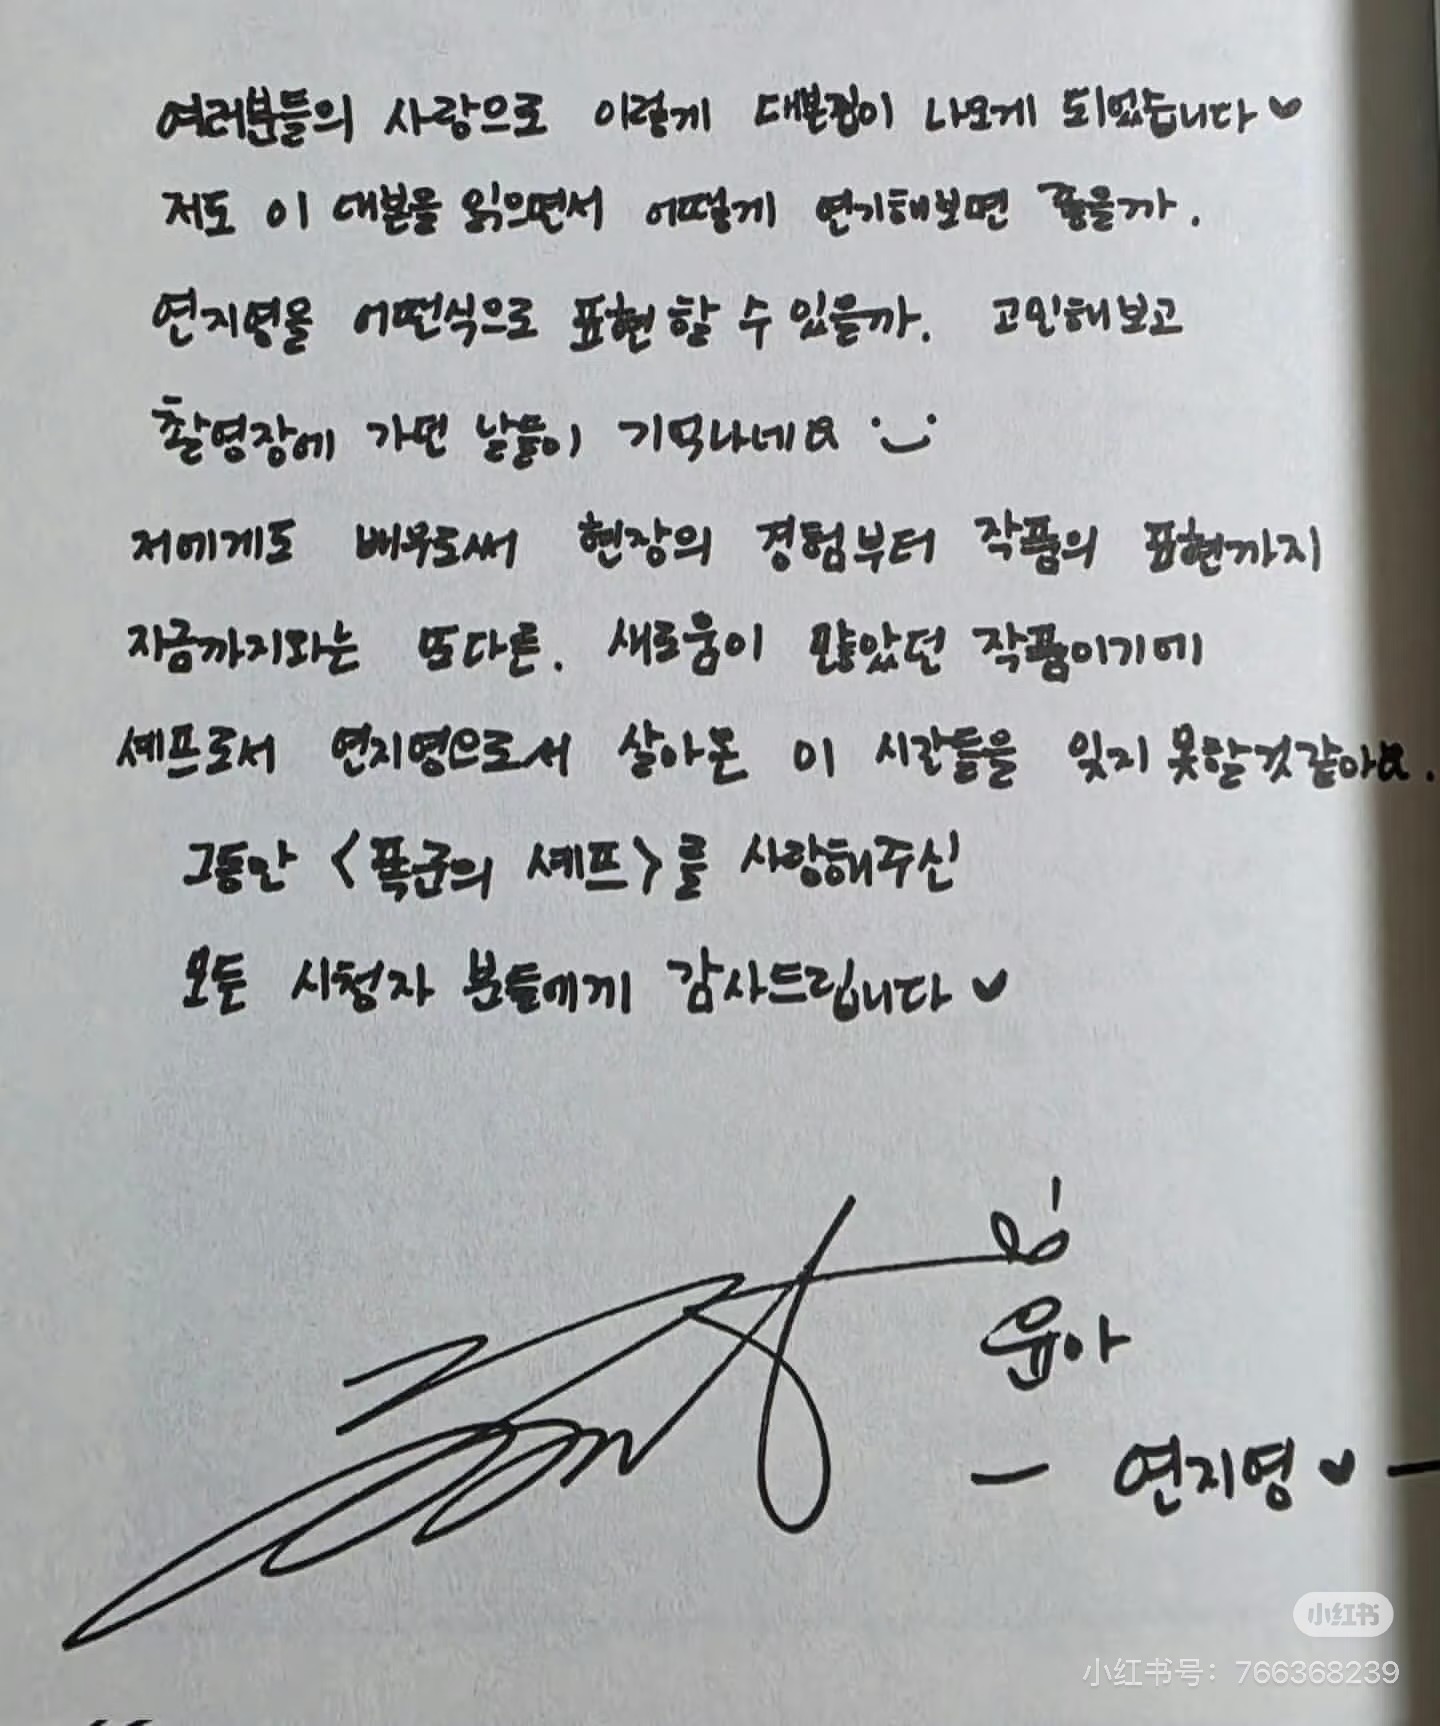 여러분들의 사랑으로 이렇게 대본집이 나오게 되었습니다♥
저도 이 대본을 읽으면서 어떻게 연기해보면 좋을까.
연지영을 어떤식으로 표현할 수 있을까. 고민해보고
촬영장에 가던 날들이 기억나네요
저에게도 배우로써 현장의 경험부터 작품의 표현까지
지금까지와는 또다른. 새로움이 많았던 작품이기에
셰프로서 연지영으로서 살아온 이 시간들을 잊지 못할것 같아요.
그동안 <폭군의 셰프>를 사랑해주신
모든 시청자 분들에게 감사드립니다♥
임
윤아
— 연지영♥ —
小红书
小红书号：766368239